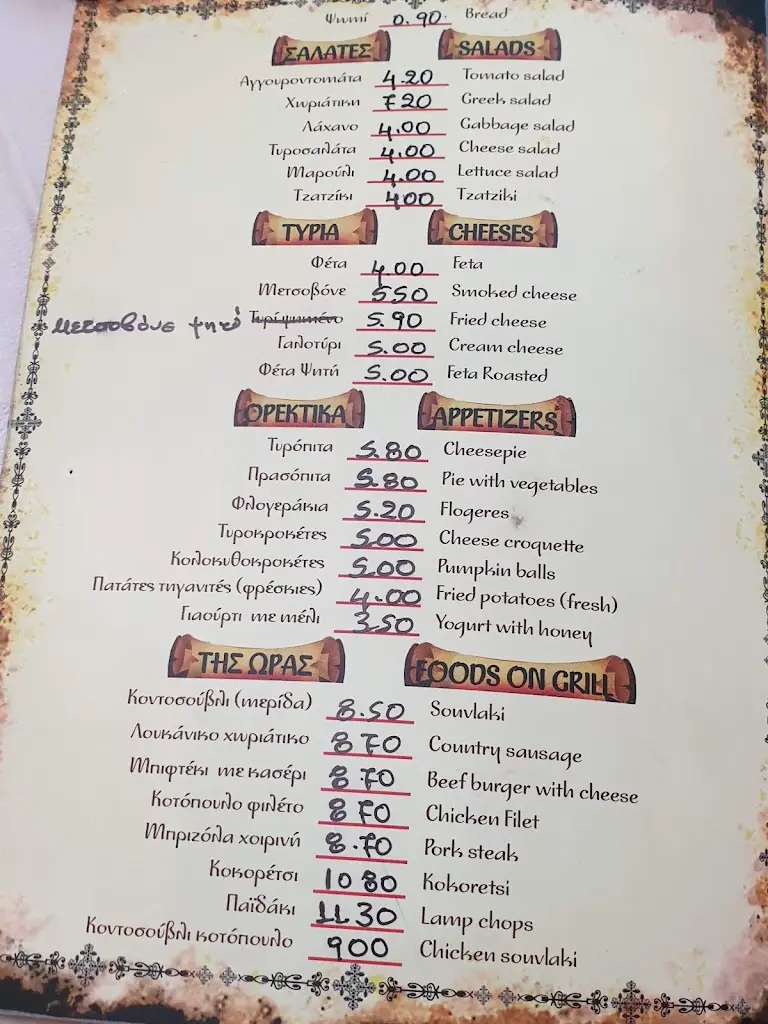 Ψωμί 0.90 Bread
ΣΑΛΑΤΕΣ SALADS
Αγγουροντομάτα 4.20 Tomato salad
Χωριάτικη 7.20 Greek salad
Λάχανο 4.00 Gabbage salad
Τυροσαλάτα 4.00 Cheese salad
Μαρούλι 4.00 Lettuce salad
Τζατζίκι 400 Tzatziki
ΤΥΡΙΑ CHEESES
Φέτα 4.00 Feta
Μετσοβόνε 550 Smoked cheese
Μετσοβόνε ψητό Τυρί ψημένο 5.90 Fried cheese
Γαλοτύρι 5.00 Cream cheese
Φέτα Ψητή 5.00 Feta Roasted
ΟΡΕΚΤΙΚΑ APPETIZERS
Τυρόπιτα 5.80 Cheesepie
Πρασόπιτα 5.80 Pie with vegetables
Φλογεράκια 5.20 Flogeres
Τυροκροκέτες 5.00 Cheese croquette
Κολοκυθοκροκέτες 5.00 Pumpkin balls
Πατάτες τηγανιτές (φρέσκιες) 4.00 Fried potatoes (fresh)
Γιαούρτι με μέλι 3.50 Yogurt with honey
ΤΗΣ ΩΡΑΣ FOODS ON GRILL
Κοντοσούβλι (μερίδα) 8.50 Souvlaki
Λουκάνικο χωριάτικο 870 Country sausage
Μπιφτέκι με κασέρι 8.70 Beef burger with cheese
Κοτόπουλο φιλέτο 870 Chicken Filet
Μπριζόλα χοιρινή 8.70 Pork steak
Κοκορέτσι 10 80 Kokoretsi
Παϊδάκι 11 30 Lamp chops
Κοντοσούβλι κοτόπουλο 900 Chicken souvlaki